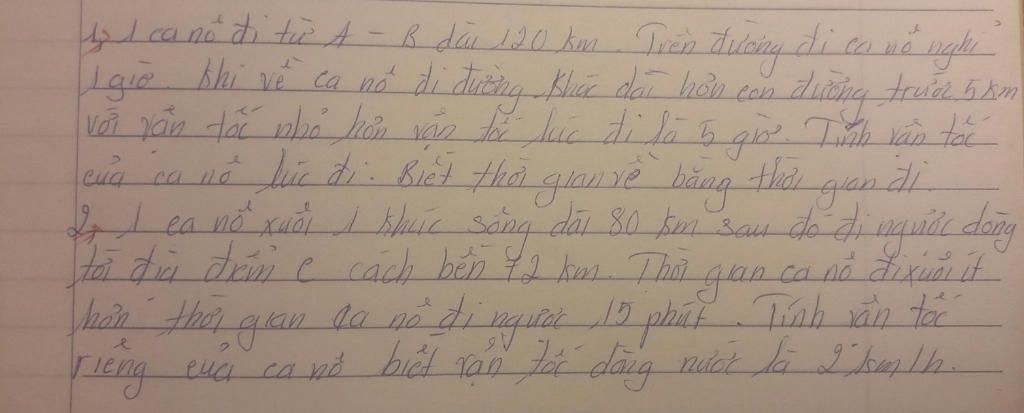 1, 1 ca nô đi từ A - B dài 120 km. Trên đường đi ca nô nghỉ
1 giờ. Khi về ca nô đi đường khác dài hơn con đường trước 5 km
với vận tốc nhỏ hơn vận tốc lúc đi là 5 giờ. Tính vận tốc
của ca nô lúc đi. Biết thời gian về bằng thời gian đi.
2, 1 ca nô xuôi 1 khúc sông dài 80 km sau đó đi ngược dòng
tới địa điểm C cách bến 72 km. Thời gian ca nô đi xuôi ít
hơn thời gian ca nô đi ngược 15 phút. Tính vận tốc
riêng của ca nô biết vận tốc dòng nước là 2 km/h.